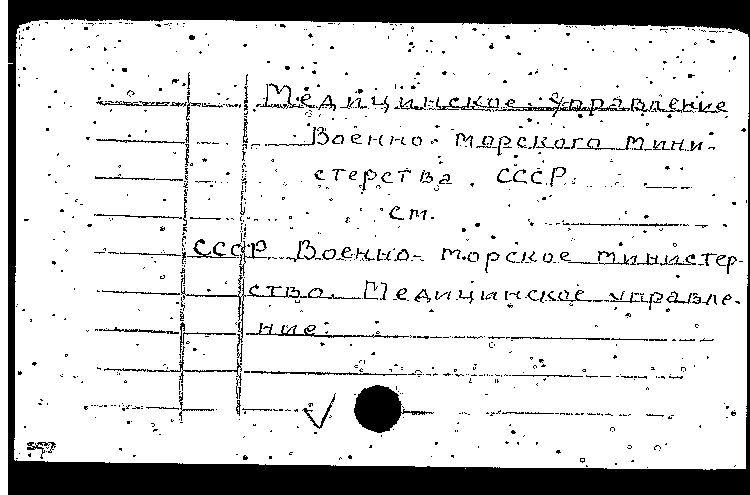 Медицинское управление
Военно-морского мини-
стерства СССР.
см.
СССР Военно-морское министер-
ство. Медицинское управле-
ние.